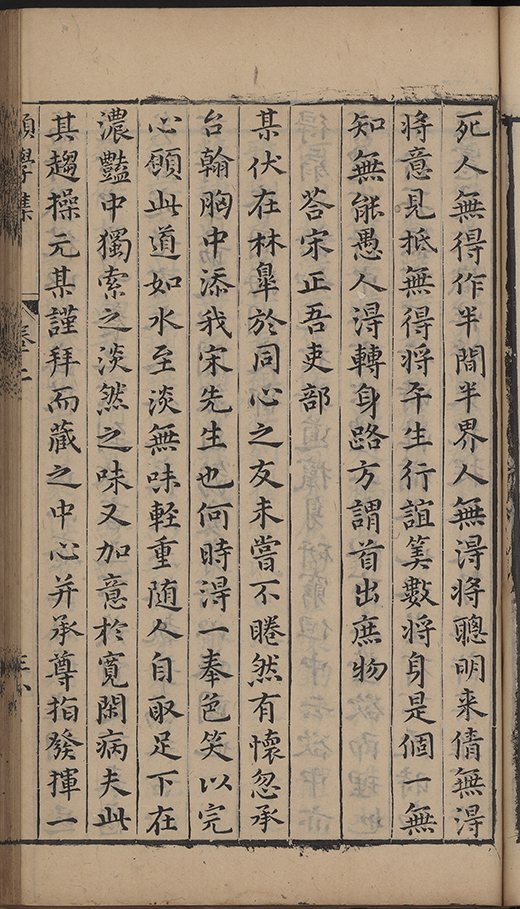 死人無得作半間半界人無得將聰明来倩無得
将意見抵無得將平生行誼筭數将身是個一無
知無能愚人得轉身路方謂首出庶物
荅宋正吾吏部
某伏在林臯於同心之友未嘗不睠然有懷忽承
台翰胸中添我宋先生也何時得一奉色笑以完
心願此道如水至淡無味輕重随人自取足下在
濃豔中獨索之淡然之味又加意於寬閑病夫此
其趨操元某謹拜而藏之中心并承尊指發揮一
願學集
卷二